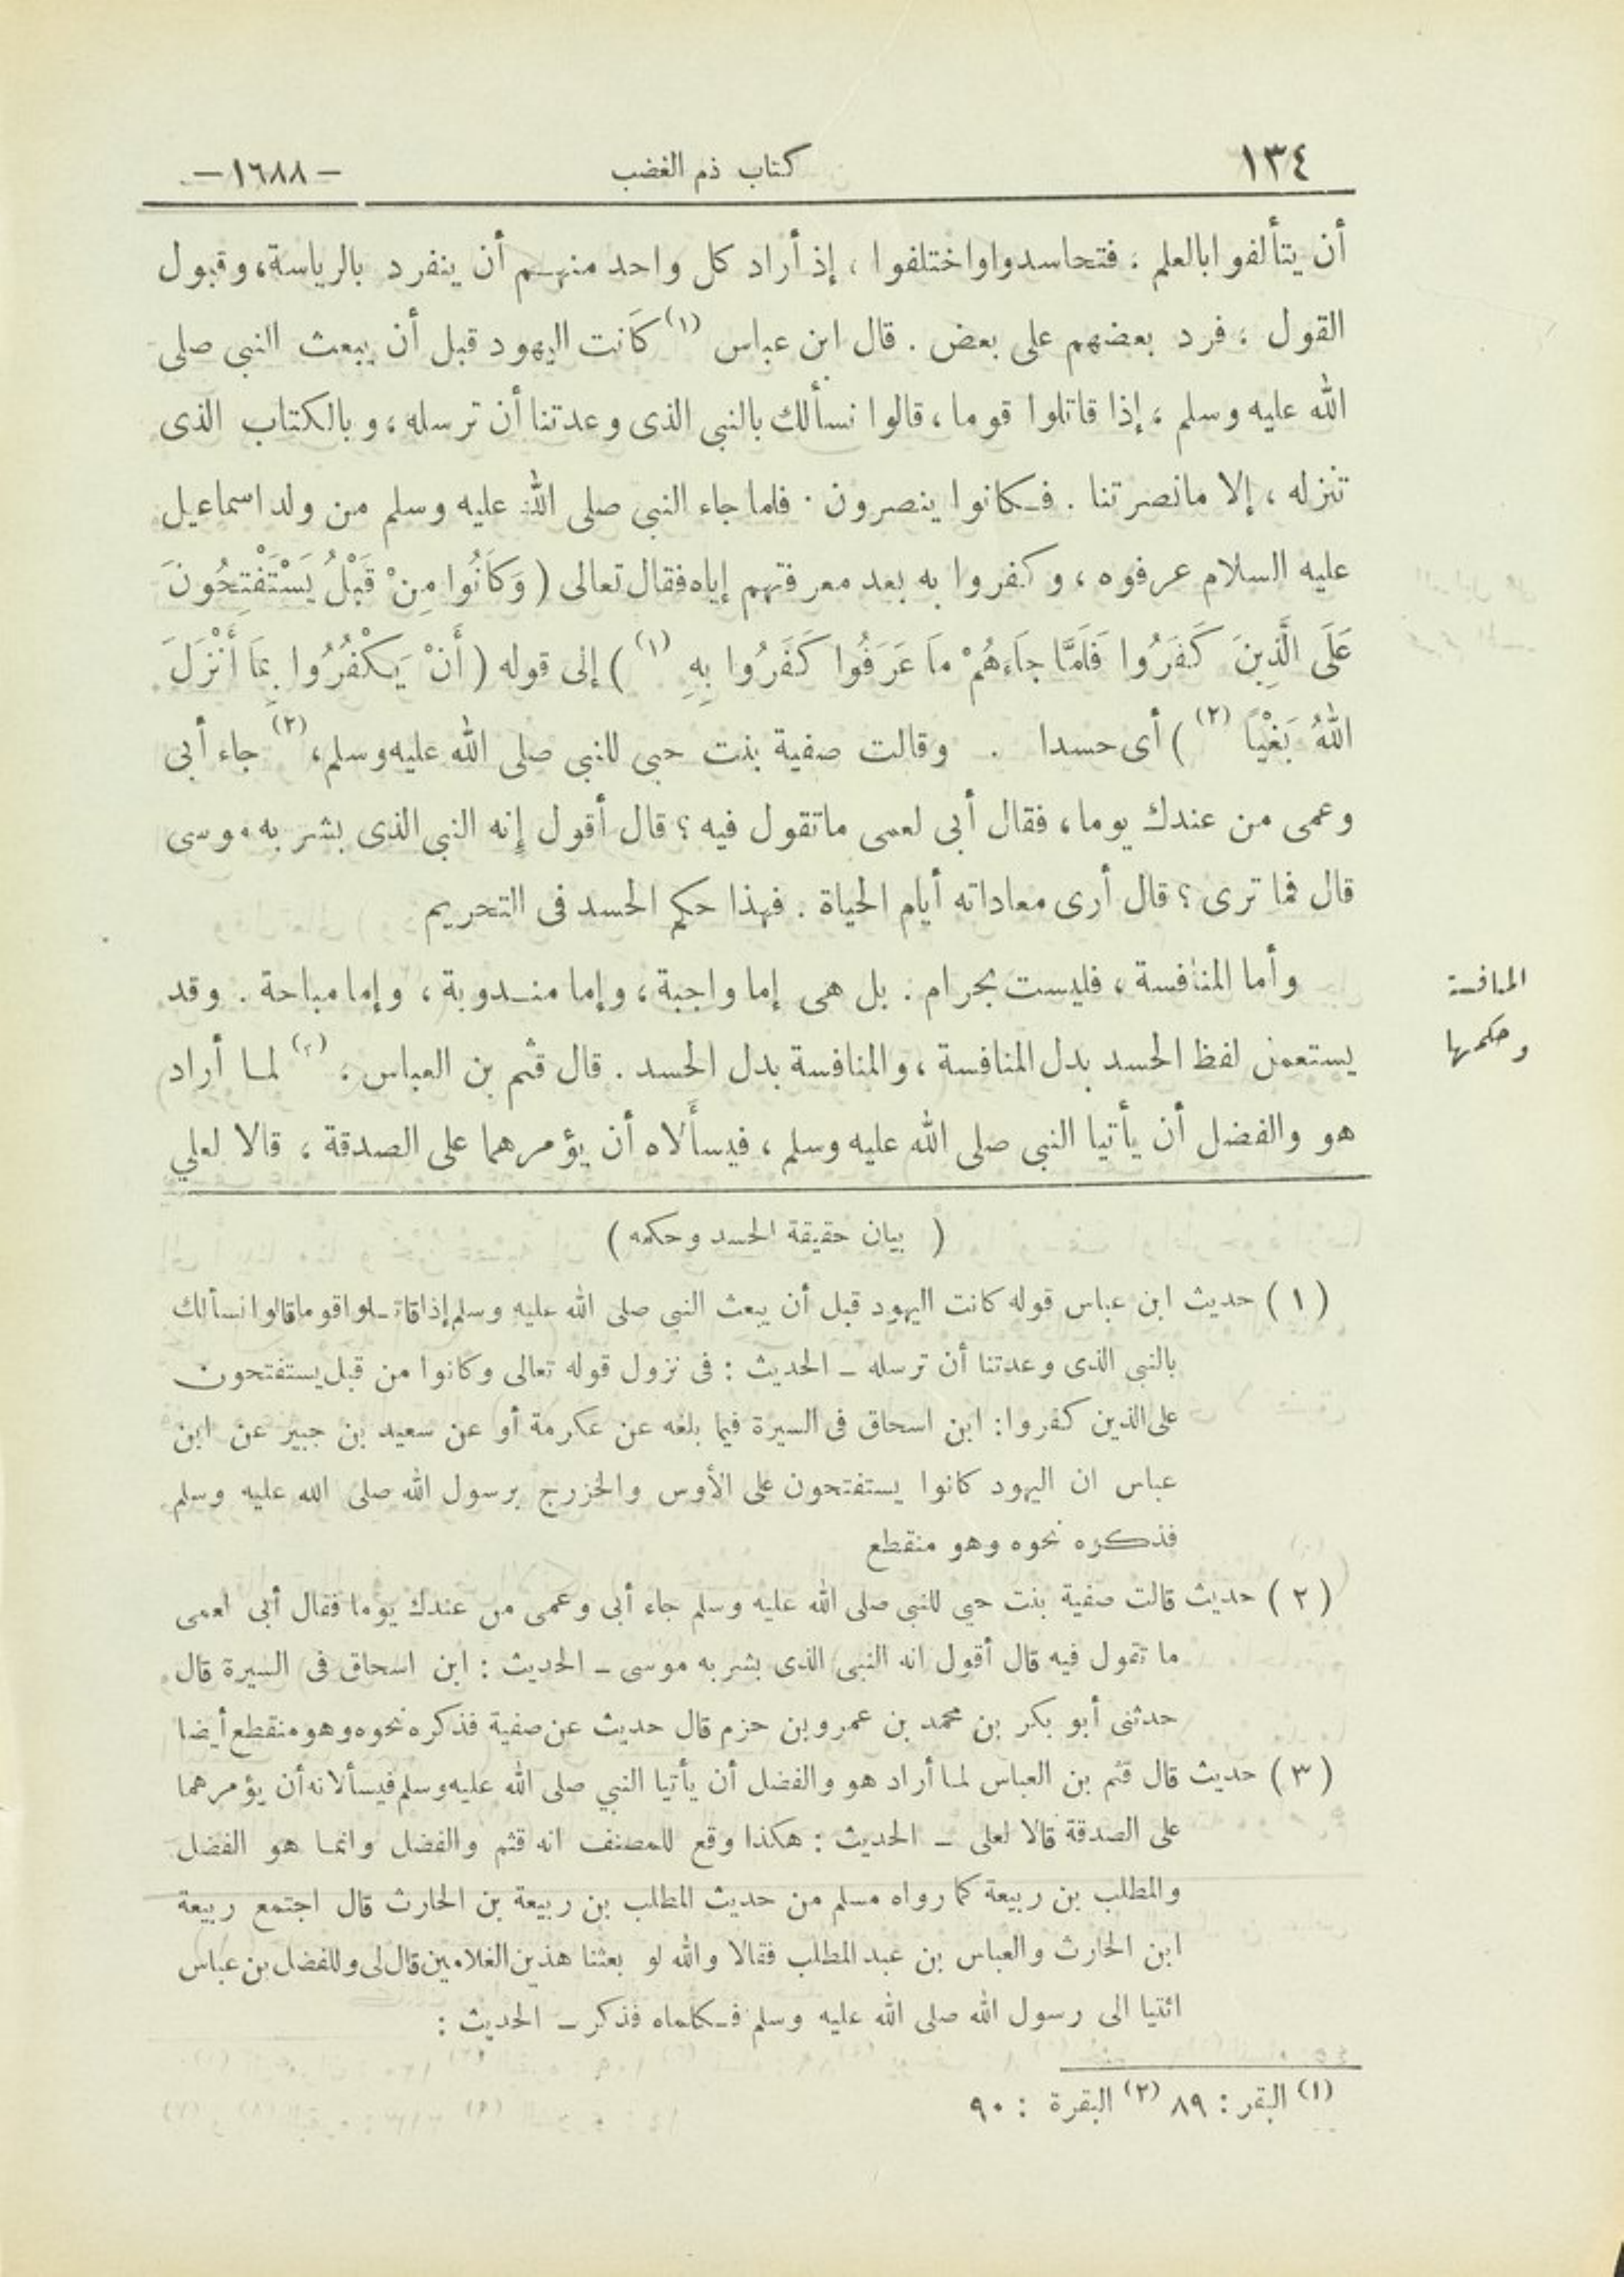 ١٣٤ كتاب ذم الغضب — ١٦٨٨ —
أن يتألفوا بالعلم ، فتحاسدوا واختلفوا ، إذ أراد كل واحد منهم أن ينفرد بالرياسة، وقبول
القول ، فرد بعضهم على بعض . قال ابن عباس (١) كانت اليهود قبل أن يبعث النبى صلى
الله عليه وسلم ، إذا قاتلوا قوما ، قالوا نسألك بالنبى الذى وعدتنا أن ترسله ، وبالكتاب الذى
تنزله ، إلا مانصرتنا . فكانوا ينصرون . فلما جاء النبى صلى الله عليه وسلم من ولد اسماعيل
عليه السلام عرفوه ، وكفروا به بعد معرفتهم إياه فقال تعالى ( وَكَانُوا مِنْ قَبْلُ يَسْتَفْتِحُونَ
عَلَى الَّذِينَ كَفَرُوا فَلَمَّا جَاءَهُمْ مَا عَرَفُوا كَفَرُوا بِهِ (١) ) إلى قوله ( أَنْ يَكْفُرُوا بِمَا أَنْزَلَ
اللهُ بَغْيًا (٢) ) أى حسدا . وقالت صفية بنت حيى للنبى صلى الله عليه وسلم، (٢) جاء أبى
وعمى من عندك يوما ، فقال أبى لعمى ماتقول فيه ؟ قال أقول إنه النبى الذى بشر به موسى
قال فما ترى ؟ قال أرى معاداته أيام الحياة . فهذا حكم الحسد فى التحريم
المنافسة
وحكمها
وأما المنافسة ، فليست بحرام . بل هى إما واجبة ، وإما مندوبة ، وإما مباحة . وقد
يستعمل لفظ الحسد بدل المنافسة ، والمنافسة بدل الحسد . قال قثم بن العباس ، (٣) لما أراد
هو والفضل أن يأتيا النبى صلى الله عليه وسلم ، فيسألاه أن يؤمرهما على الصدقة ، قالا لعلي
( بيان حقيقة الحسد وحكمه )
(١) حديث ابن عباس قوله كانت اليهود قبل أن يبعث النبى صلى الله عليه وسلم إذا قاتلوا قوما قالوا نسألك
بالنبى الذى وعدتنا أن ترسله - الحديث : فى نزول قوله تعالى وكانوا من قبل يستفتحون
على الذين كفروا: ابن اسحاق فى السيرة فيما بلغه عن عكرمة أو عن سعيد بن جبير عن ابن
عباس ان اليهود كانوا يستفتحون على الأوس والخزرج برسول الله صلى الله عليه وسلم
فذكره نحوه وهو منقطع
(٢) حديث قالت صفية بنت حيي للنبى صلى الله عليه وسلم جاء أبى وعمى من عندك يوما فقال أبى لعمى
ما تقول فيه قال أقول انه النبى الذى بشر به موسى - الحديث : ابن اسحاق فى السيرة قال
حدثنى أبو بكر بن محمد بن عمرو بن حزم قال حديث عن صفية فذكره نحوه وهو منقطع أيضا
(٣) حديث قال قثم بن العباس لما أراد هو والفضل أن يأتيا النبي صلى الله عليه وسلم فيسألانه أن يؤمرهما
على الصدقة قالا لعلى - الحديث : هكذا وقع للمصنف انه قثم والفضل وانما هو الفضل
والمطلب بن ربيعة كما رواه مسلم من حديث المطلب بن ربيعة بن الحارث قال اجتمع ربيعة
ابن الحارث والعباس بن عبد المطلب فقالا والله لو بعثنا هذين الغلامين قال لى وللفضل بن عباس
ائتيا الى رسول الله صلى الله عليه وسلم فكلماه فذكر - الحديث :
(١) البقر : ٨٩ (٢) البقرة : ٩٠